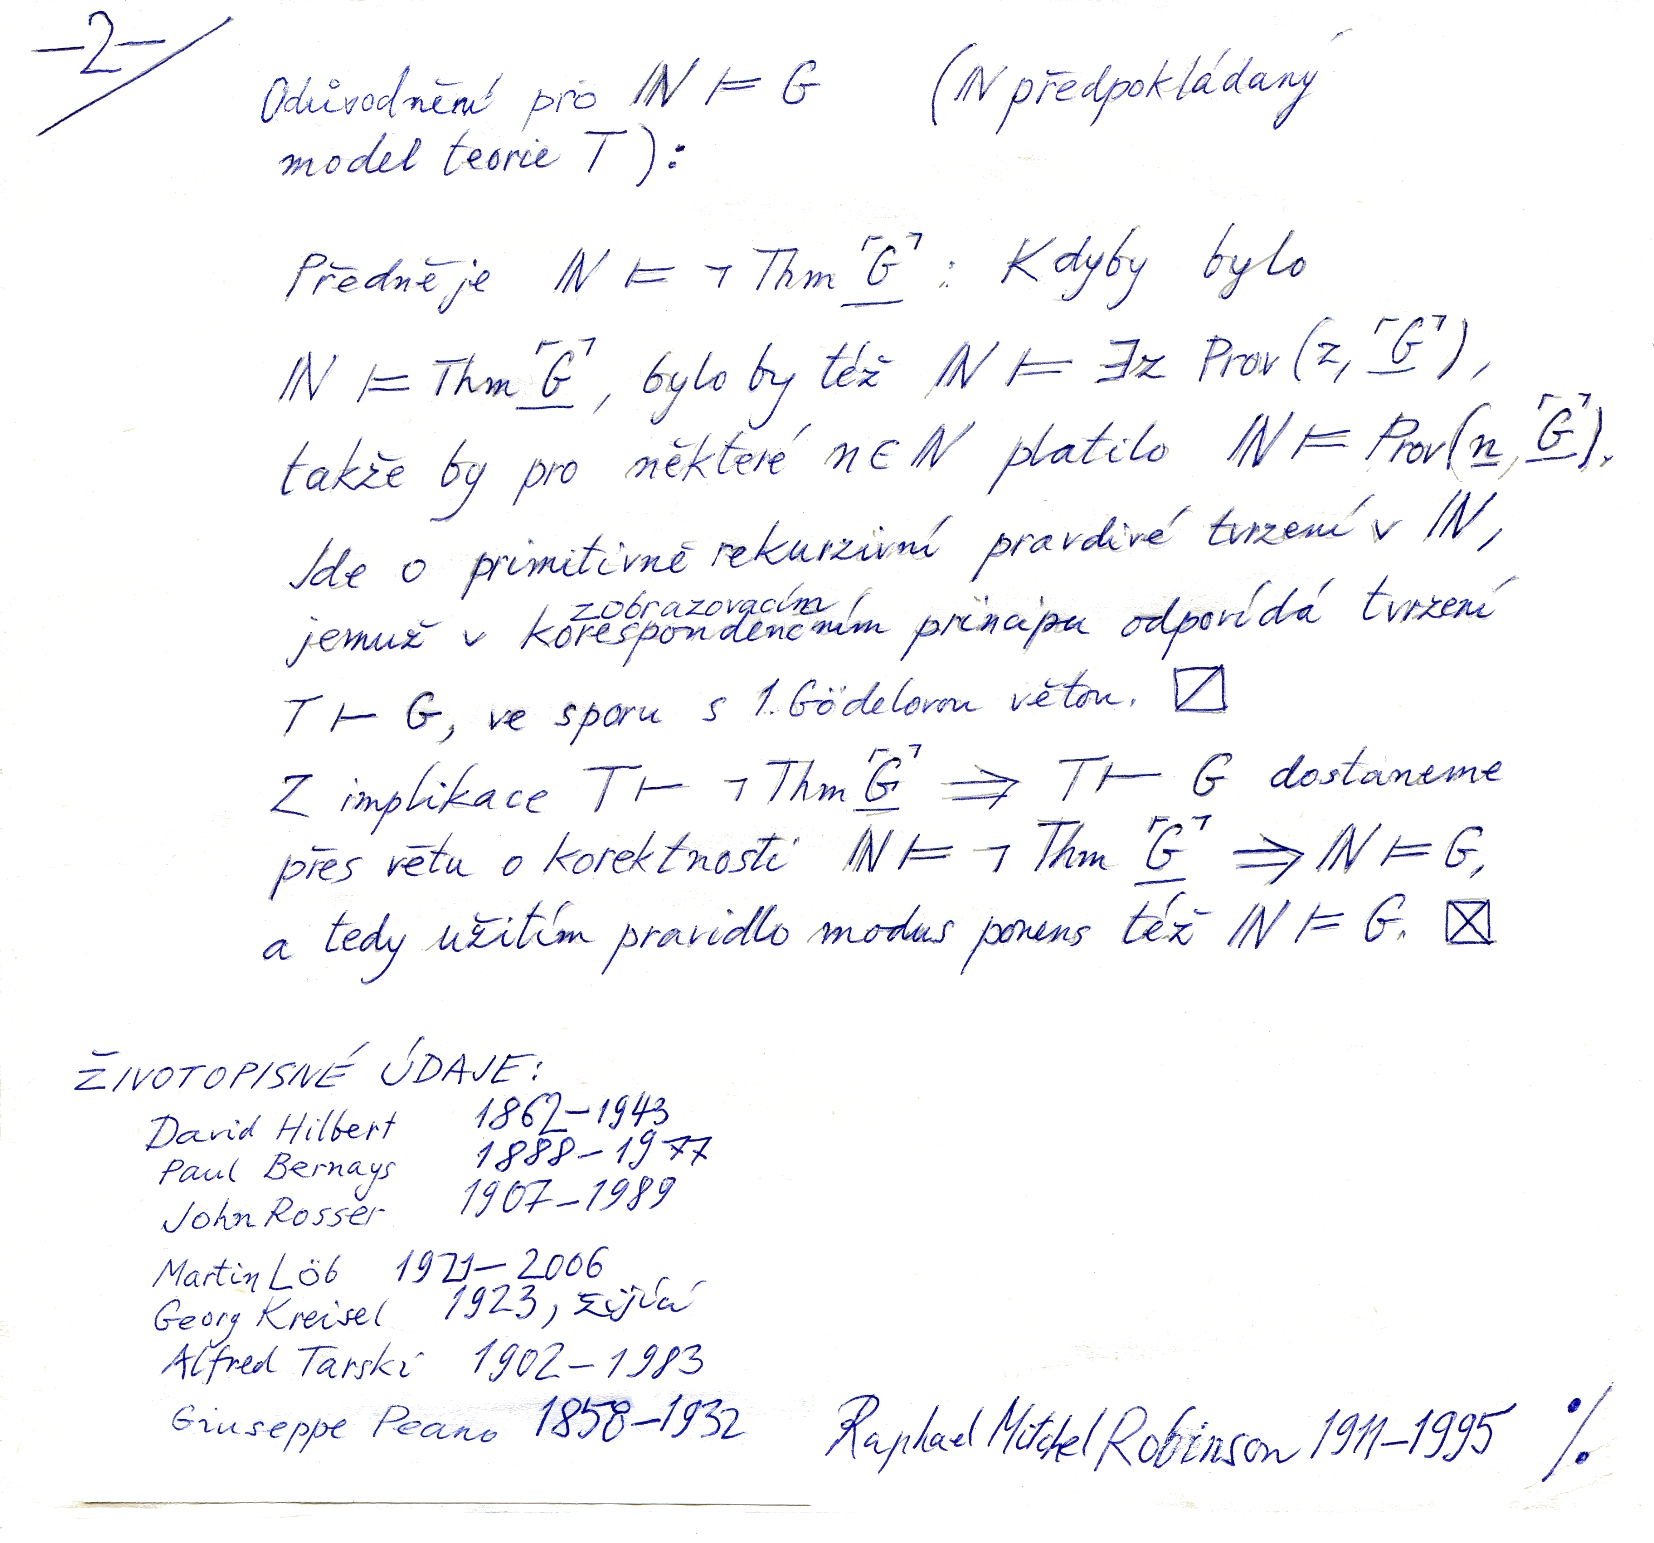 -2-
Odůvodnění pro ℕ ⊨ G (ℕ předpokládaný
model teorie T):
Předně je ℕ ⊨ ¬ Thm ⌜G⌝ : Kdyby bylo
ℕ ⊨ Thm ⌜G⌝, bylo by též ℕ ⊨ ∃z Prov(z, ⌜G⌝),
takže by pro některé n ∈ ℕ platilo ℕ ⊨ Prov(n, ⌜G⌝).
Jde o primitivně rekurzivní pravdivé tvrzení v ℕ,
zobrazovacím
jemuž v korespondenčním principu odpovídá tvrzení
T ⊢ G, ve sporu s 1. Gödelovou větou. ⍁
Z implikace T ⊢ ¬ Thm ⌜G⌝ ⟹ T ⊢ G dostaneme
přes větu o korektnosti ℕ ⊨ ¬ Thm ⌜G⌝ ⟹ ℕ ⊨ G,
a tedy užitím pravidlo modus ponens též ℕ ⊨ G. ⊠
ŽIVOTOPISNÉ ÚDAJE:
David Hilbert 1862–1943
Paul Bernays 1888–1977
John Rosser 1907–1989
Martin Löb 1921–2006
Georg Kreisel 1923, žijící
Alfred Tarski 1902–1983
Giuseppe Peano 1858–1932
Raphael Mitchel Robinson 1911–1995 ·/.